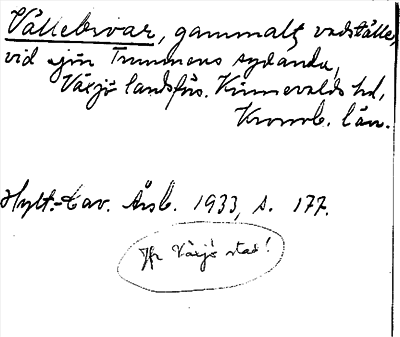 Vållebovar, gammalt vadställe,
vid sjön Trummens sydända,
Växjö landsförs. Kinnevalds hd,
Kronob. län.
Hylt.-Cav. Årsb. 1933, s. 177.
Jfr Växjö stad!